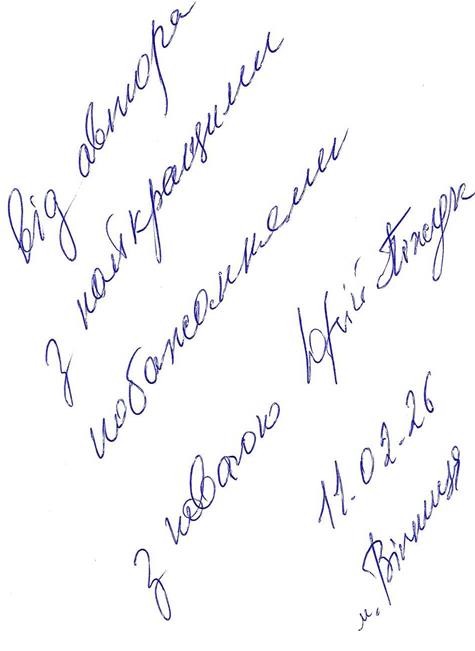 від автора
з найкращими
побажаннями
з повагою Юрій
11.02.26
м. Вінниця